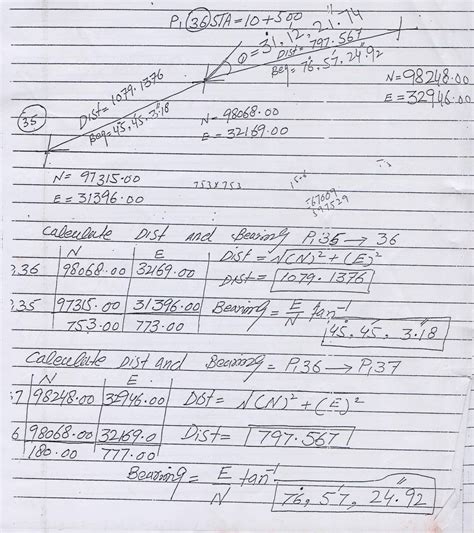 P1 36 STA = 10 + 500
Φ = 31, 12, 21.74
Dist = 797.567
Beg = 76, 57, 24.92
N = 98248.00
E = 32946.00
Dist = 1079.1376
Beg = 45, 45, 3.18
N = 98068.00
E = 32169.00
35
N = 97315.00
E = 31396.00
753x753
567009
597529
Calculate Dist and Bearing P,35 → 36
N E
36 98068.00 32169.00
35 97315.00 31396.00
753.00 773.00
Dist = √(N)² + (E)²
Dist = 1079.1376
Bearing = E/N tan⁻¹
45, 45, 3.18
Calculate Dist and Bearing = P,36 → P,37
N E
7 98248.00 32946.00
6 98068.00 32169.0
180.00 777.00
Dist = √(N)² + (E)²
Dist = 797.567
Bearing = E/N tan⁻¹
76, 57, 24.92